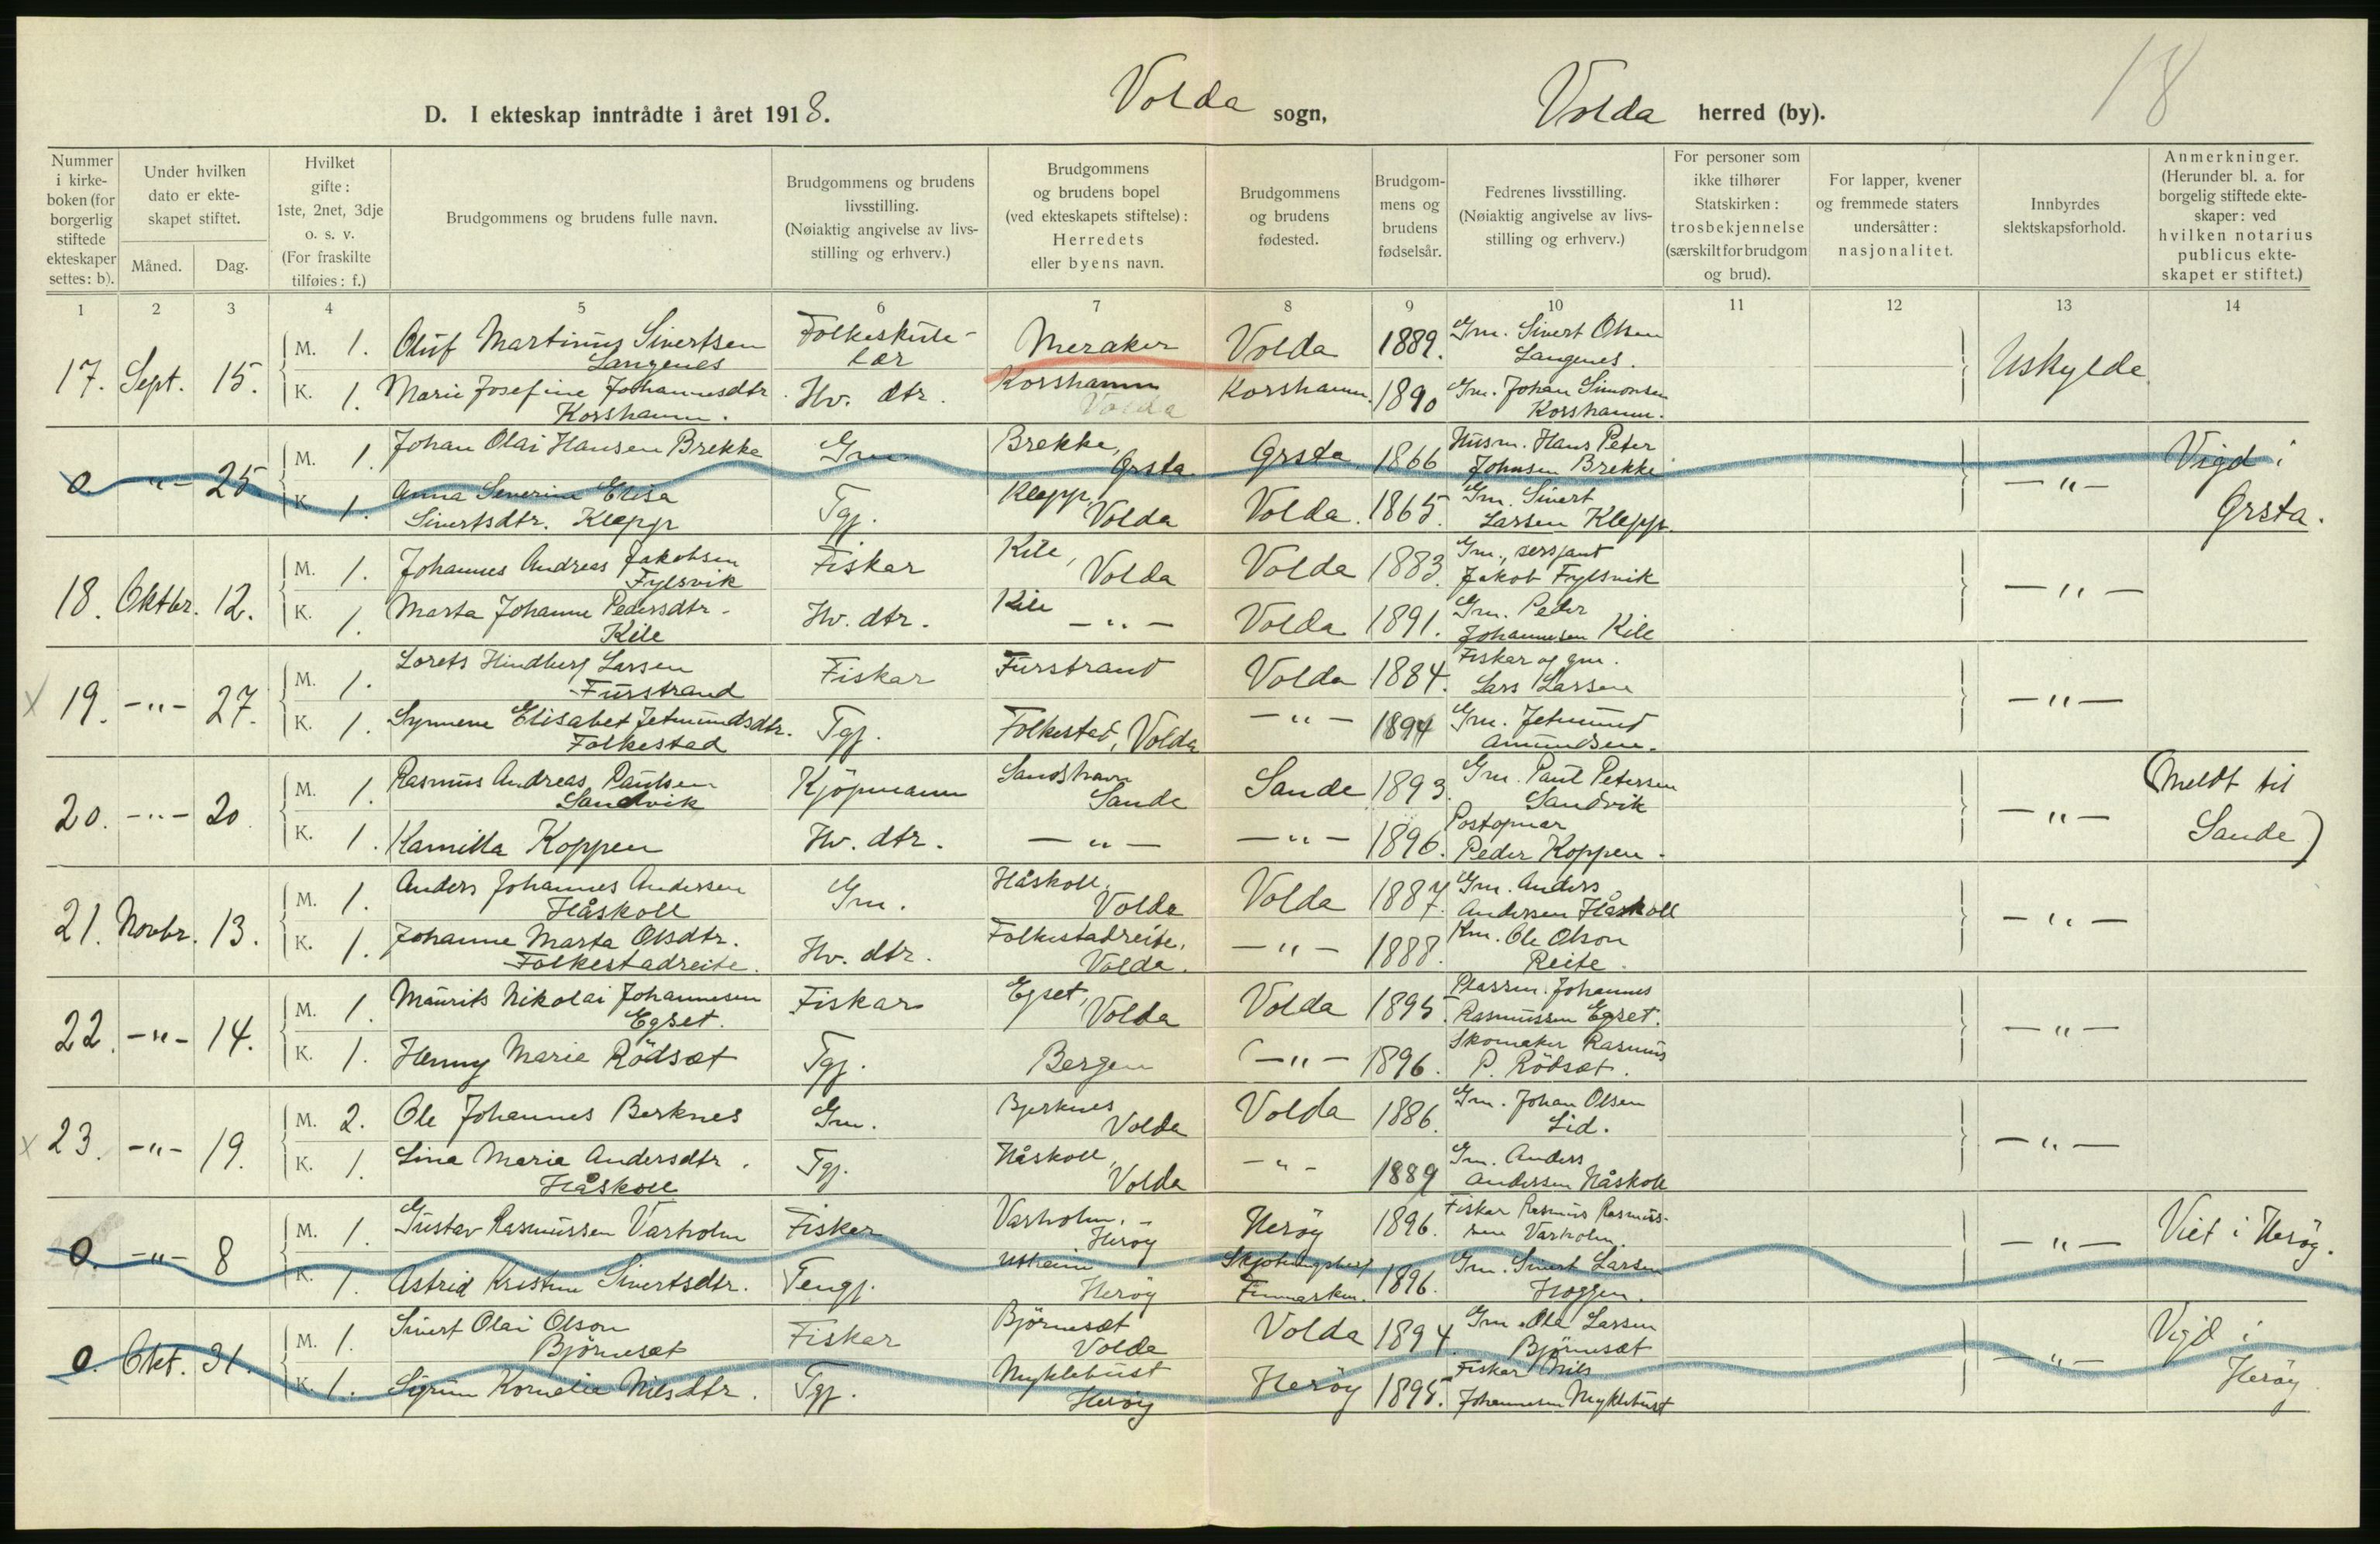 18
D. I ekteskap inntrådte i året 1918. Volda sogn, Volda herred (by).
Nummer i kirke-boken (for borgerlig stiftede ekteskaper settes: b).
Under hvilken dato er ekte-skapet stiftet.
Måned. Dag.
Hvilket gifte: 1ste, 2net, 3dje o. s. v. (For fraskilte tilføies: f.)
Brudgommens og brudens fulle navn.
Brudgommens og brudens livsstilling. (Nøiaktig angivelse av livs-stilling og erhverv.)
Brudgommens og brudens bopel (ved ekteskapets stiftelse): Herredets eller byens navn.
Brudgommens og brudens fødested.
Brudgom-mens og brudens fødselsår.
Fedrenes livsstilling. (Nøiaktig angivelse av livs-stilling og erhverv.)
For personer som ikke tilhører Statskirken: trosbekjennelse (særskilt for brudgom og brud).
For lapper, kvener og fremmede staters undersåtter: nasjonalitet.
Innbyrdes slektskapsforhold.
Anmerkninger. (Herunder bl. a. for borgelig stiftede ekte-skaper: ved hvilken notarius publicus ekte-skapet er stiftet.)
1 2 3 4 5 6 7 8 9 10 11 12 13 14
17. Sept. 15. M. 1. Oluf Martinus Sivertsen Langenes Folkeskule-lær Meraker Volda 1889. Gm. Sivert Olsen Langenes. Uskylde
K. 1. Marie Josefine Johannesdtr Korshamn. Hv. dtr. Korshamn Volda Korshamn. 1890 Gm. Johan Simonsen Korshamn.
0. -"- 25 M. 1. Johan Olai Hansen Brekke Gm. Brekke, Ørsta Ørsta 1866 Husm. Hans Peter Johnsen Brekke -"- Vigd i Ørsta.
K. 1. Anna Severine Elisa Sivertsdtr. Klepp Tgj. Klepp, Volda Volda. 1865. Gm. Sivert Larsen Klepp.
18. Oktbr. 12. M. 1. Johannes Andreas Jakobsen Fylsvik Fiskar Kile, Volda Volda 1883. Gm., sersjant Jakob Fylsvik -"-
K. 1. Marta Johanne Pedersdtr. Kile Hv. dtr. Kile -"- Volda 1891. Gm. Peder Johannesen Kile
X 19. -"- 27. M. 1. Lorets Hindberg Larsen Furstrand Fiskar Furstrand Volda 1884. Fisker og gm. Lars Larsen -"-
K. 1. Synnene Elisabet Jetmundsdtr. Folkestad Tgj. Folkestad, Volda -"- 1894 Gm. Jetmund Amundsen.
20. -"- 20 M. 1. Rasmus Andreas Paulsen Sandvik Kjöpmann Sandshavn Sande Sande 1893. Gm. Paul Petersen Sandvik -"- (Meldt til Sande)
K. 1. Kamilla Koppen Hv. dtr. -"- -"- 1896. Postopnar Peder Koppen.
21. Novbr. 13. M. 1. Anders Johannes Andersen Håskoll Gm. Håskoll, Volda Volda 1887. Gm. Anders Andersen Håskoll -"-
K. 1. Johanne Marta Olsdtr. Folkestadreite. Hv. dtr. Folkestadreite, Volda. -"- 1888. Km. Ole Olson Reite.
22. -"- 14. M. 1. Maurits Nikolai Johannesen Egset. Fiskar Egset, Volda Volda 1895. Plassm. Johannes Rasmussen Egset. -"-
K. 1. Henny Marie Rödsæt Tgj. Bergen -"- 1896. Skomaker Rasmus P. Rödsæt.
X 23. -"- 19. M. 2. Ole Johannes Berknes Gm. Bjerknes Volda Volda 1886. Gm. Johan Olsen Lid. -"-
K. 1. Lina Maria Andersdtr. Håskoll Tgj. Håskoll, Volda -"- 1889 Gm. Anders Andersen Håskoll
0 -"- 8 M. 1. Gustav Rasmussen Varholm Fisker Varholm. Herøy Herøy 1896. Fiskar Rasmus Rasmus-sen Varholm. -"- Viet i Herøy.
K. 1. Astrid Kristine Sivertsdtr. Tengj. Herøy Finmarken. 1896. Gm. Sivert Larsen Hoggen.
0. Okt. 31. M. 1. Sivert Olai Olson Björnesæt Fiskar Björnesæt Volda Volda 1894. Gm. Ola Larsen Björnesæt -"- Vigd i Herøy
K. 1. Sigrun Kornelie Nilsdtr. Tgj. Myklebust Herøy Herøy 1895. Fiskar Nils Johannesen Myklebust